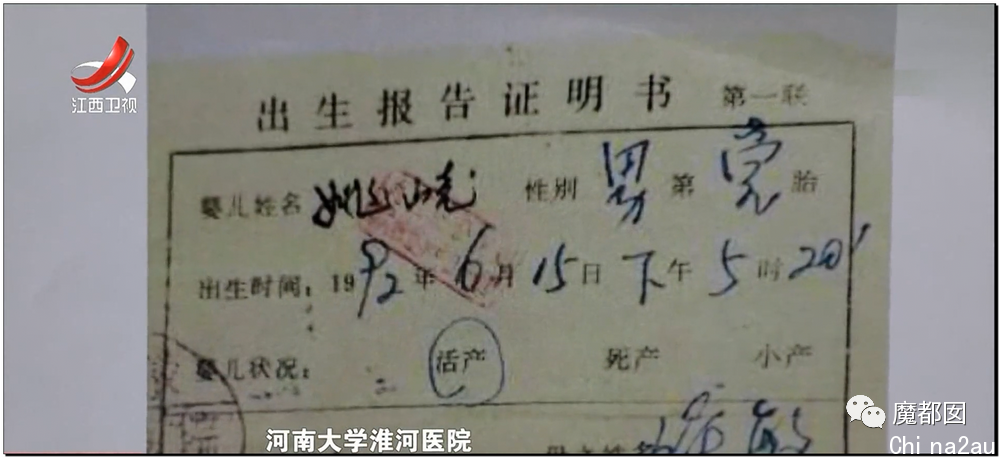 江西卫视
出生报告证明书 第一联
婴儿姓名 姚 性别 男 第 胎
出生时间: 1992年 6月 15日 下午 5时 20'
婴儿状况: 活产 死产 小产
河南大学淮河医院
魔都囡
China2au